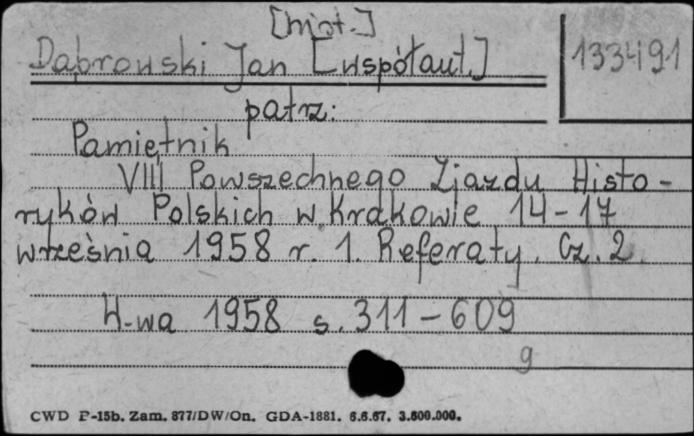 [hist.]
Dąbrowski Jan [współaut.]
133491
patrz:
Pamiętnik
VIII Powszechnego Zjazdu Histo-
ryków Polskich w Krakowie 14-17
września 1958 r. 1. Referaty. Cz. 2.
W-wa 1958 s. 311-609
g
CWD P-15b. Zam. 877/DW/On. GDA-1881. 6.6.67. 3.600.000.